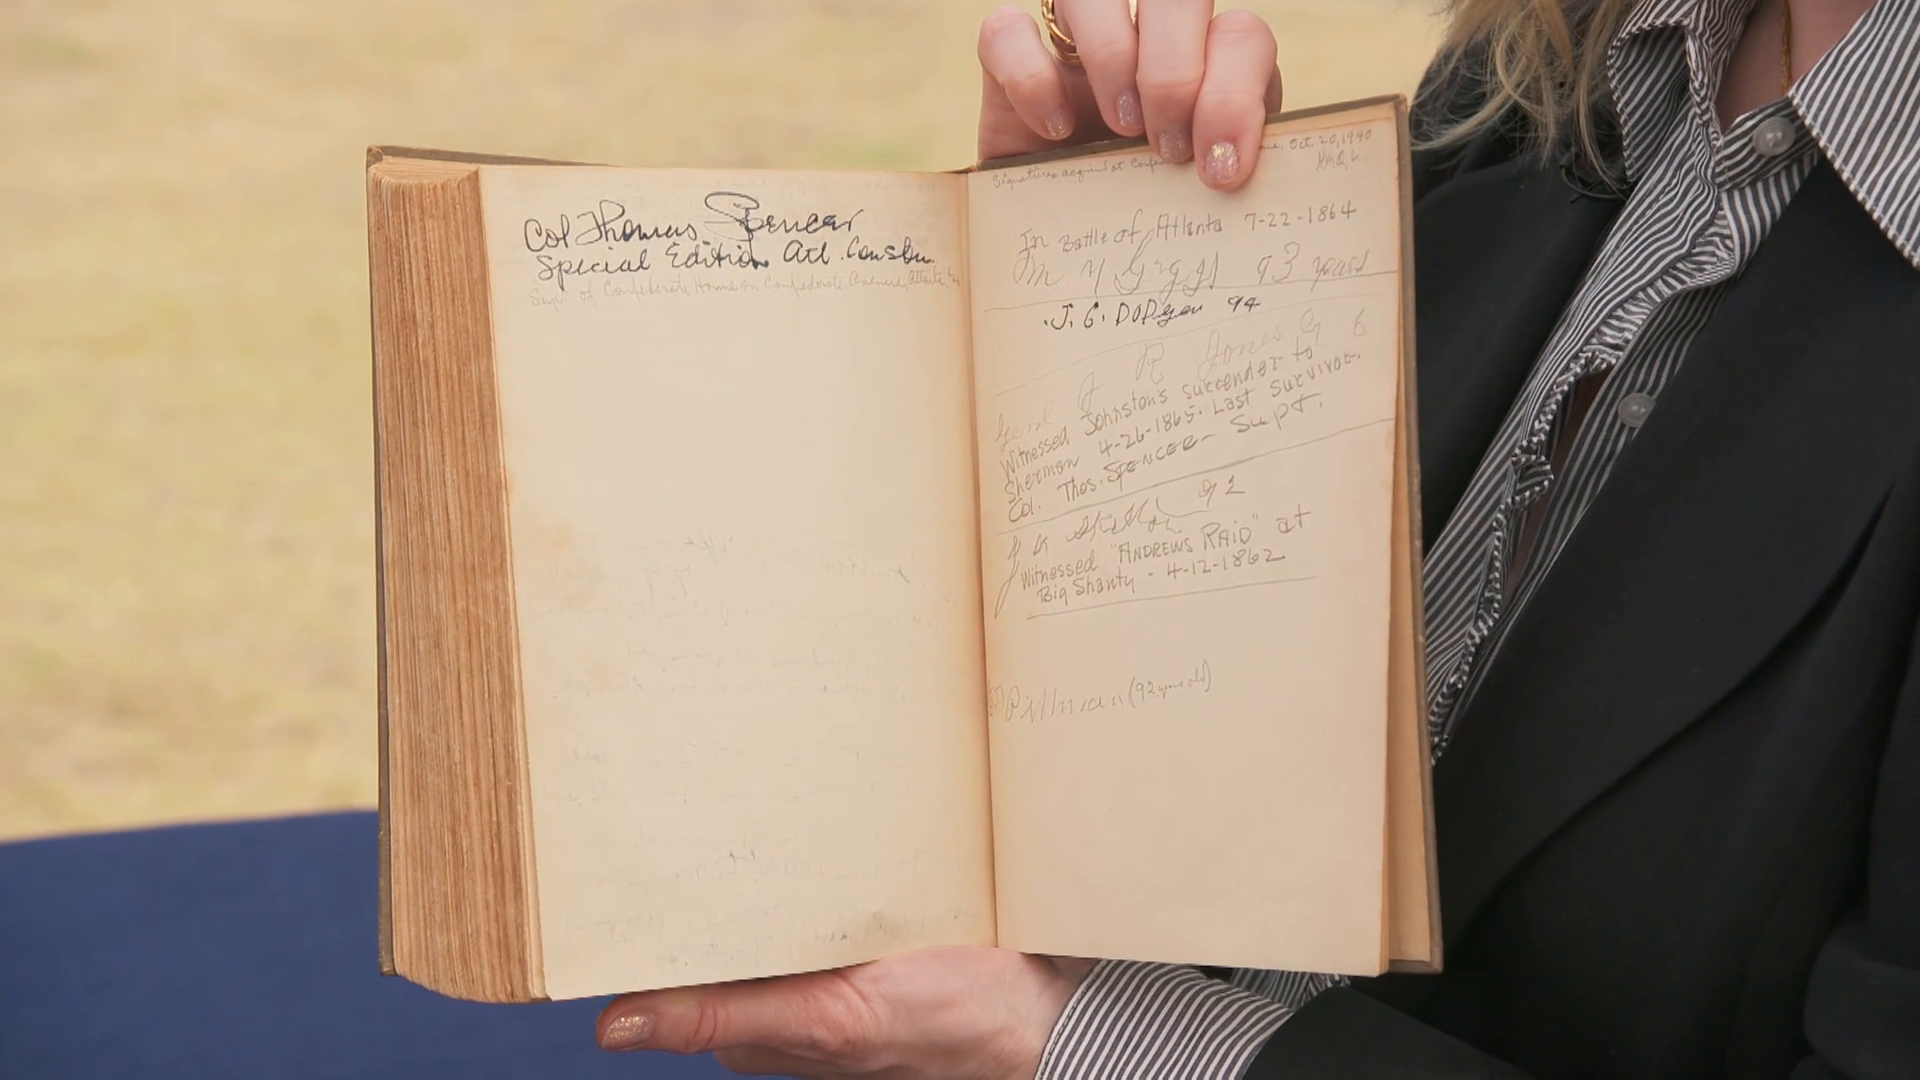 Col Thomas Spencer
Special Edition Atl. Constn.
Supt. of Confederate Home on Confederate Avenue, Atlanta, Ga
Signatures acquired at Confe
Oct. 20, 1940
In Battle of Atlanta 7-22-1864
93 years
J. C. Dodgen 94
Genl J R Jones 9 6
Witnessed Johnston's surrender to
Sherman 4-26-1865. Last Survivor.
Col. Thos. SPENCER - Supt.
92
Witnessed "ANDREWS RAID" at
Big Shanty - 4-12-1862
(92 years old)